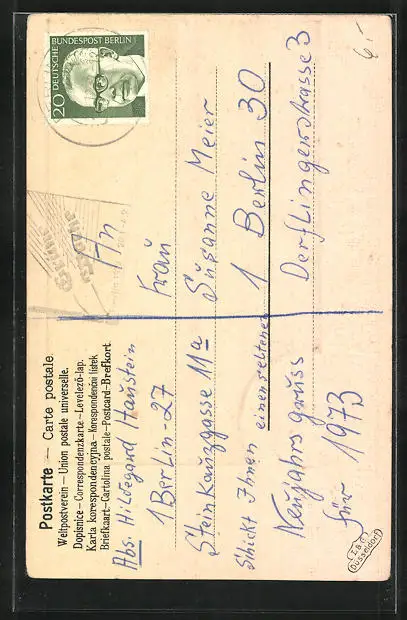 Postkarte — Carte postale
Weltpostverein — Union postale universelle.
Dopisnice – Correspondenzkarte – Levelező-lap.
Karta korespondencyjna – Korespondenční lístek
Briefkaart – Cartolina postale – Postcard – Brefkort
Abs. Hildegard Haustein
1 Berlin-27
Steinkauzgasse 11a
Schickt Ihnen einen seltenen
Neujahrsgruss
für 1973
Z & G
Düsseldorf
20 DEUTSCHE BUNDESPOST BERLIN
6,-
An
Frau
Susanne Meier
1 Berlin 30
Derflingerstrasse 3